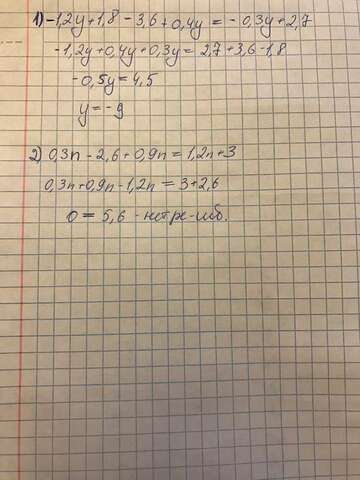 1) -1,2y+1,8-3,6+0,4y=-0,3y+2,7
-1,2y+0,4y+0,3y=2,7+3,6-1,8
-0,5y=4,5
y=-9
2) 0,3n-2,6+0,9n=1,2n+3
0,3n+0,9n-1,2n=3+2,6
0=5,6 -